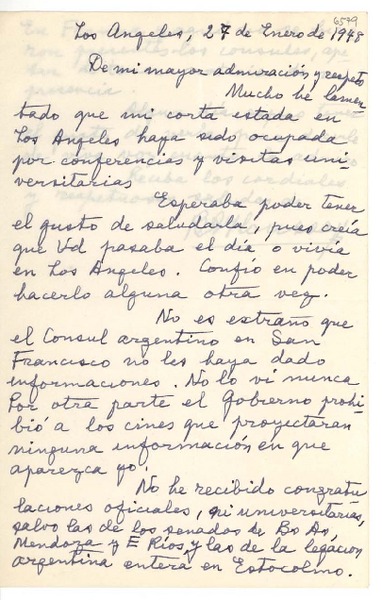 6579
Los Angeles, 27 de Enero de 1948
De mi mayor admiración y respeto
Mucho he lamen-
tado que mi corta estada en
Los Angeles haya sido ocupada
por conferencias y visitas uni-
versitarias
Esperaba poder tener
el gusto de saludarla, pues creía
que Vd pasaba el día o vivía
en Los Angeles. Confío en poder
hacerlo alguna otra vez.
No es extraño que
el Consul argentino en San
Francisco no les haya dado
informaciones. No lo vi nunca
Por otra parte el Gobierno prohi-
bió a los cines que proyectaran
ninguna información en que
aparezca yo.
No he recibido congratu
laciones oficiales, ni universitarias,
salvo las de los senados de Bs As,
Mendoza y E Ríos, y las de la legación
argentina entera en Estocolmo.